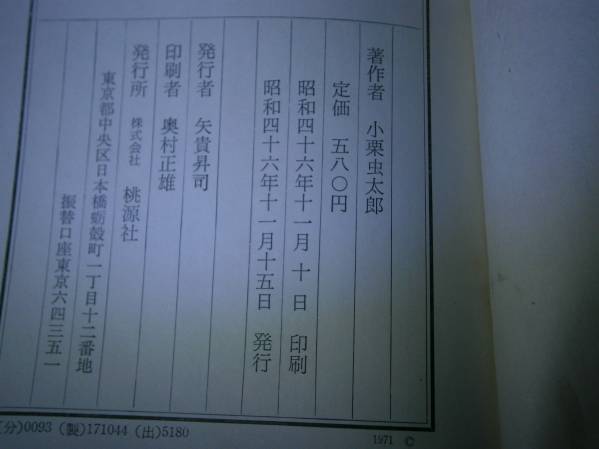 著作者 小栗虫太郎
定価 五八〇円
昭和四十六年十一月 十 日 印刷
昭和四十六年十一月十五日 発行
発行者 矢貴昇司
印刷者 奥村正雄
発行所 株式会社 桃源社
東京都中央区日本橋蛎殻町一丁目十二番地
振替口座東京六四三五一
(分)0093 (製)171044 (出)5180
1971 ©